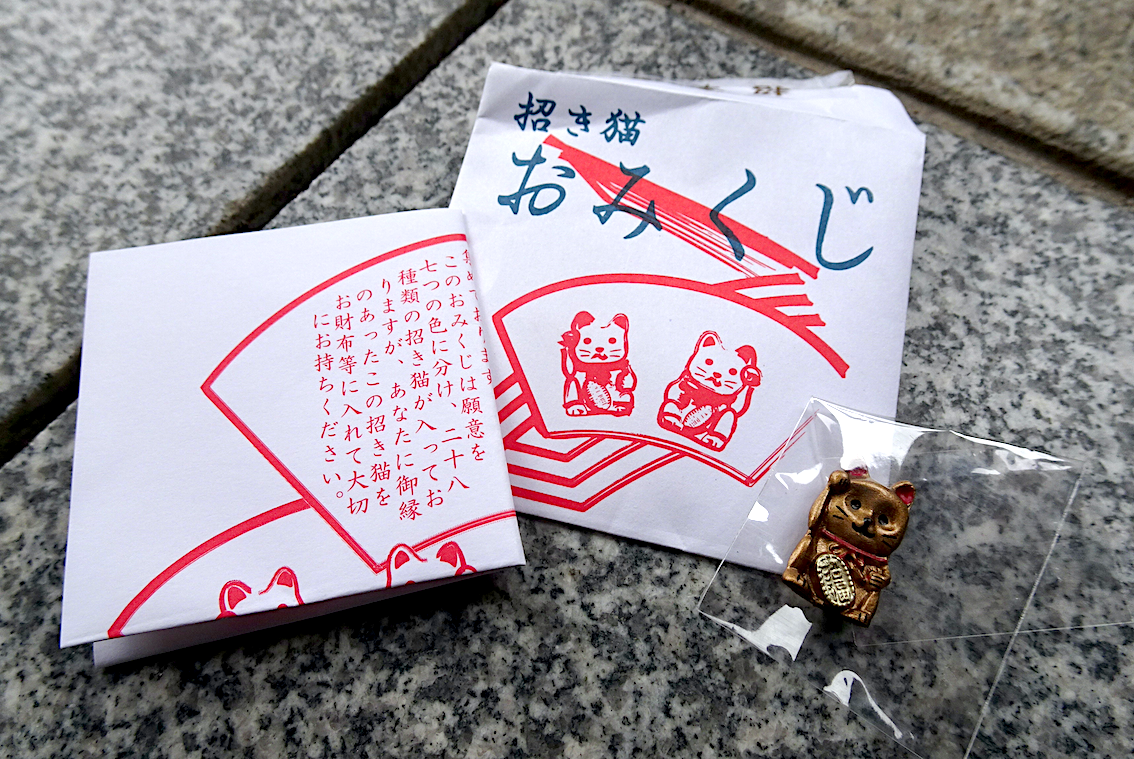 招き猫
おみくじ
集めております
このおみくじは願意を
七つの色に分け、二十八
種類の招き猫が入ってお
りますが、あなたに御縁
のあったこの招き猫を
お財布等に入れて大切
にお持ちください。